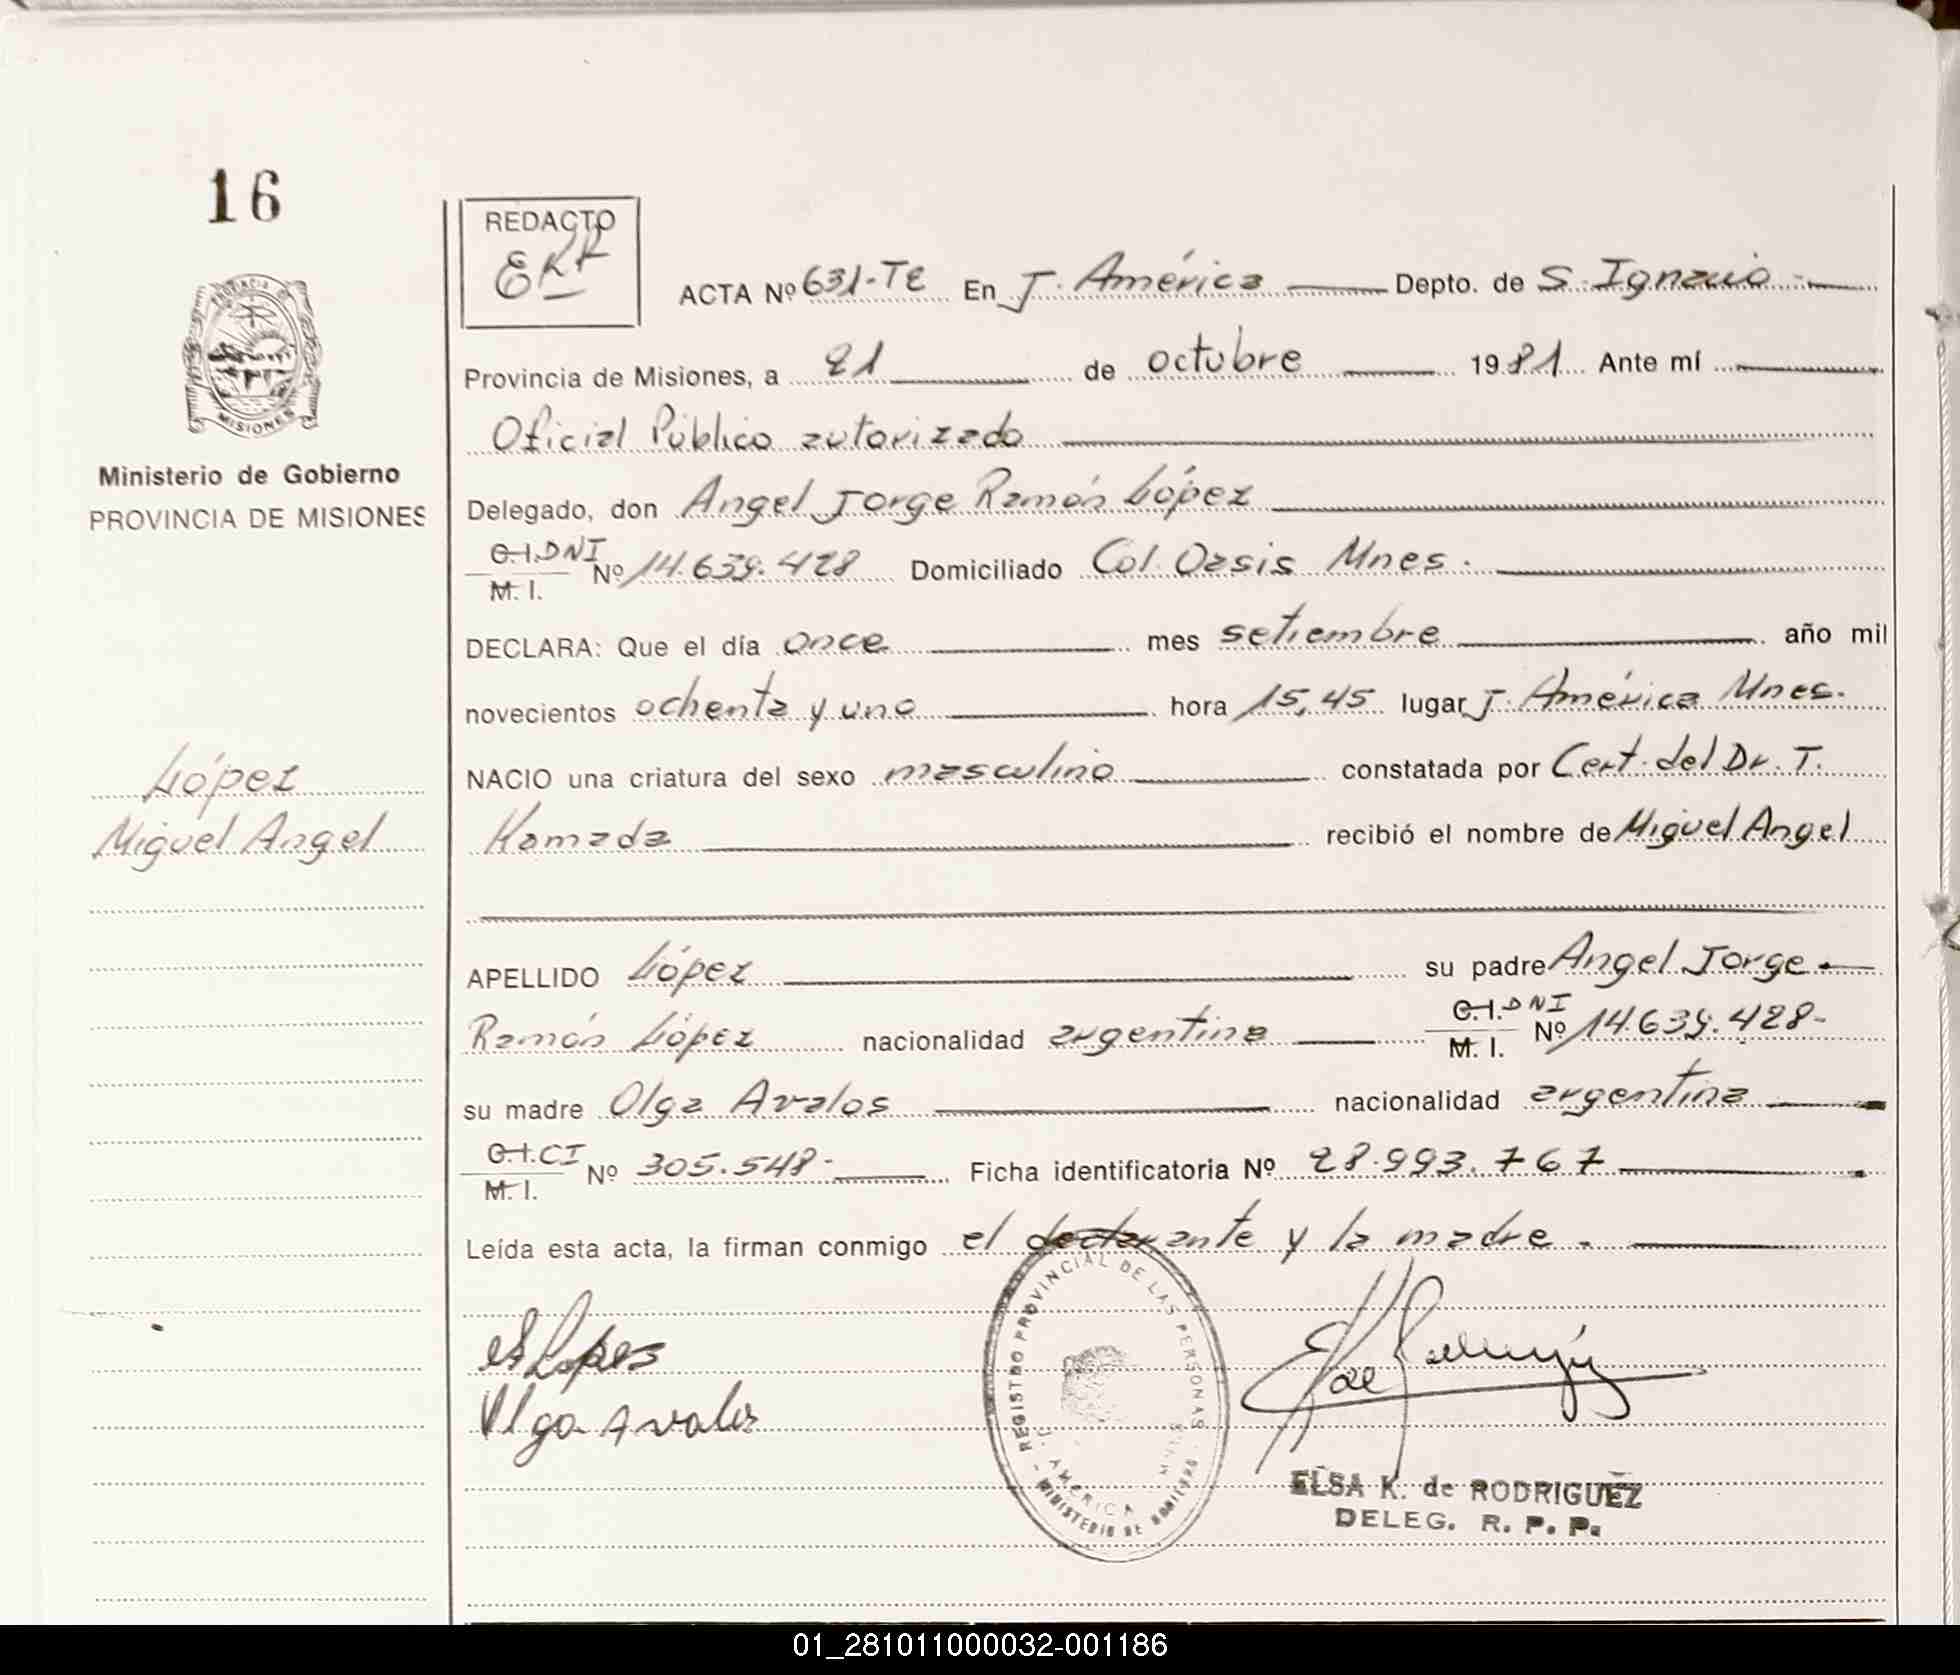 16
REDACTO
EKR
ACTA Nº 631-TE En J. América Depto. de S. Ignacio
PROVINCIA DE
MISIONES
Provincia de Misiones, a 21 de octubre 1981 Ante mí
Oficial Público autorizado
Ministerio de Gobierno
PROVINCIA DE MISIONES
Delegado, don Angel Jorge Ramón López
C.I. DNI
M. I. Nº 14.639.428 Domiciliado Col. Oasis Mnes.
DECLARA: Que el día once mes setiembre año mil
novecientos ochenta y uno hora 15,45 lugar J. América Mnes.
NACIO una criatura del sexo masculino constatada por Cert. del Dr. T.
López
Miguel Angel
Hamada recibió el nombre de Miguel Angel
APELLIDO López su padre Angel Jorge
Ramón López nacionalidad argentina C.I. DNI M. I. Nº 14.639.428-
su madre Olga Avalos nacionalidad argentina
C.I. CI
M. I. Nº 305.548- Ficha identificatoria Nº 28.993.767
Leída esta acta, la firman conmigo el declarante y la madre.
Lopes
Olga Avalos
REGISTRO PROVINCIAL DE LAS PERSONAS
J. AMERICA MNES
MINISTERIO DE GOBIERNO
ELSA K. de RODRIGUEZ
DELEG. R. P. P.
01_281011000032-001186